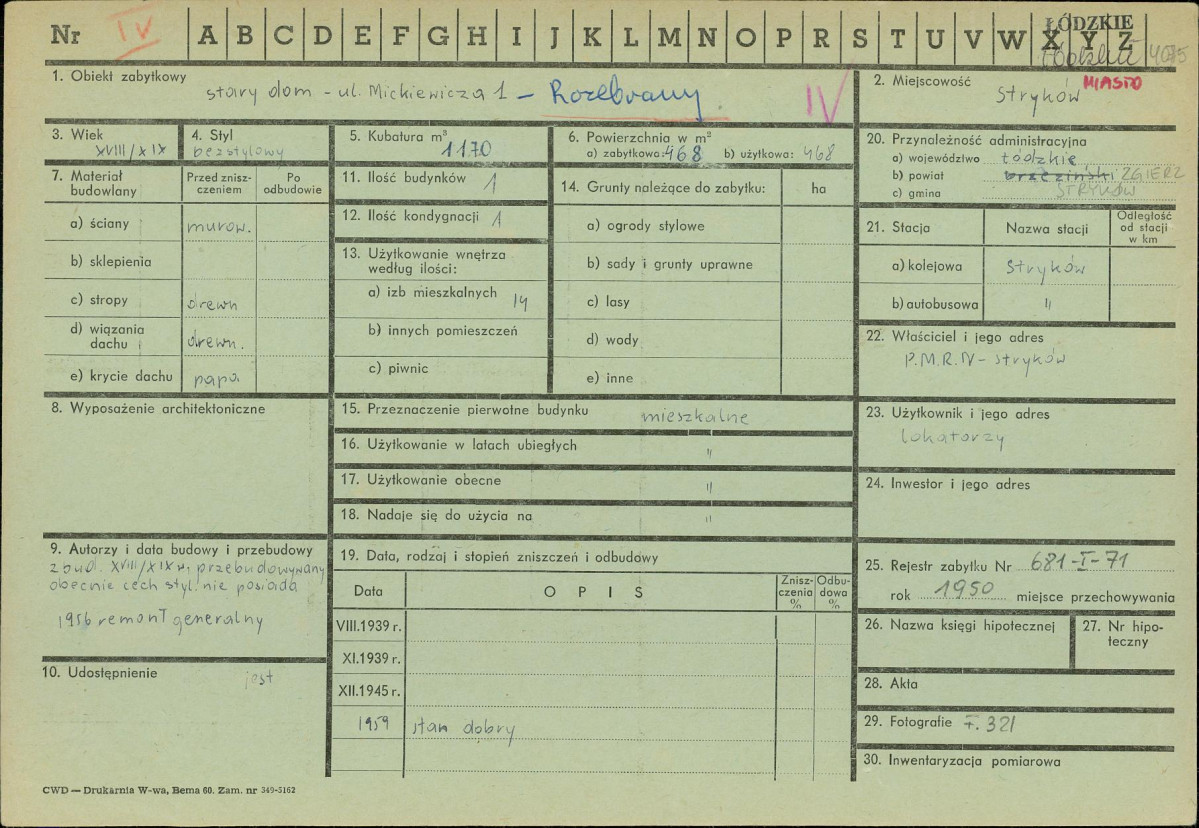 Nr IV A B C D E F G H I J K L M N O P R S T U V W X Y Z
ŁÓDZKIE
1. Obiekt zabytkowy
stary dom - ul. Mickiewicza 1 - Rozebrany IV
2. Miejscowość
Stryków MIASTO
3. Wiek
XVIII/XIX
4. Styl
bezstylowy
5. Kubatura m³
1170
6. Powierzchnia w m²
a) zabytkowa: 468 b) użytkowa: 468
7. Materiał budowlany
Przed zniszczeniem
Po odbudowie
a) ściany murow.
b) sklepienia
c) stropy drewn
d) wiązania dachu drewn.
e) krycie dachu papa
8. Wyposażenie architektoniczne
9. Autorzy i data budowy i przebudowy
zbud. XVIII/XIX w, przebudowywany
obecnie cech styl. nie posiada
1956 remont generalny
10. Udostępnienie jest
11. Ilość budynków 1
12. Ilość kondygnacji 1
13. Użytkowanie wnętrza
według ilości:
a) izb mieszkalnych 14
b) innych pomieszczeń
c) piwnic
14. Grunty należące do zabytku: ha
a) ogrody stylowe
b) sady i grunty uprawne
c) lasy
d) wody
e) inne
15. Przeznaczenie pierwotne budynku mieszkalne
16. Użytkowanie w latach ubiegłych "
17. Użytkowanie obecne "
18. Nadaje się do użycia na "
19. Data, rodzaj i stopień zniszczeń i odbudowy
Data OPIS Zniszczenia % Odbudowa %
VIII.1939 r.
XI.1939 r.
XII.1945 r.
1959 stan dobry
20. Przynależność administracyjna
a) województwo łódzkie
b) powiat brzeziński ZGIERZ
c) gmina STRYKÓW
21. Stacja Nazwa stacji Odległość od stacji w km
a) kolejowa Stryków
b) autobusowa "
22. Właściciel i jego adres
P.M.R.IV - Stryków
23. Użytkownik i jego adres
lokatorzy
24. Inwestor i jego adres
25. Rejestr zabytku Nr 681-I-71
rok 1950 miejsce przechowywania
26. Nazwa księgi hipotecznej
27. Nr hipoteczny
28. Akta
29. Fotografie F. 321
30. Inwentaryzacja pomiarowa
CWD — Drukarnia W-wa, Bema 60. Zam. nr 349-5162